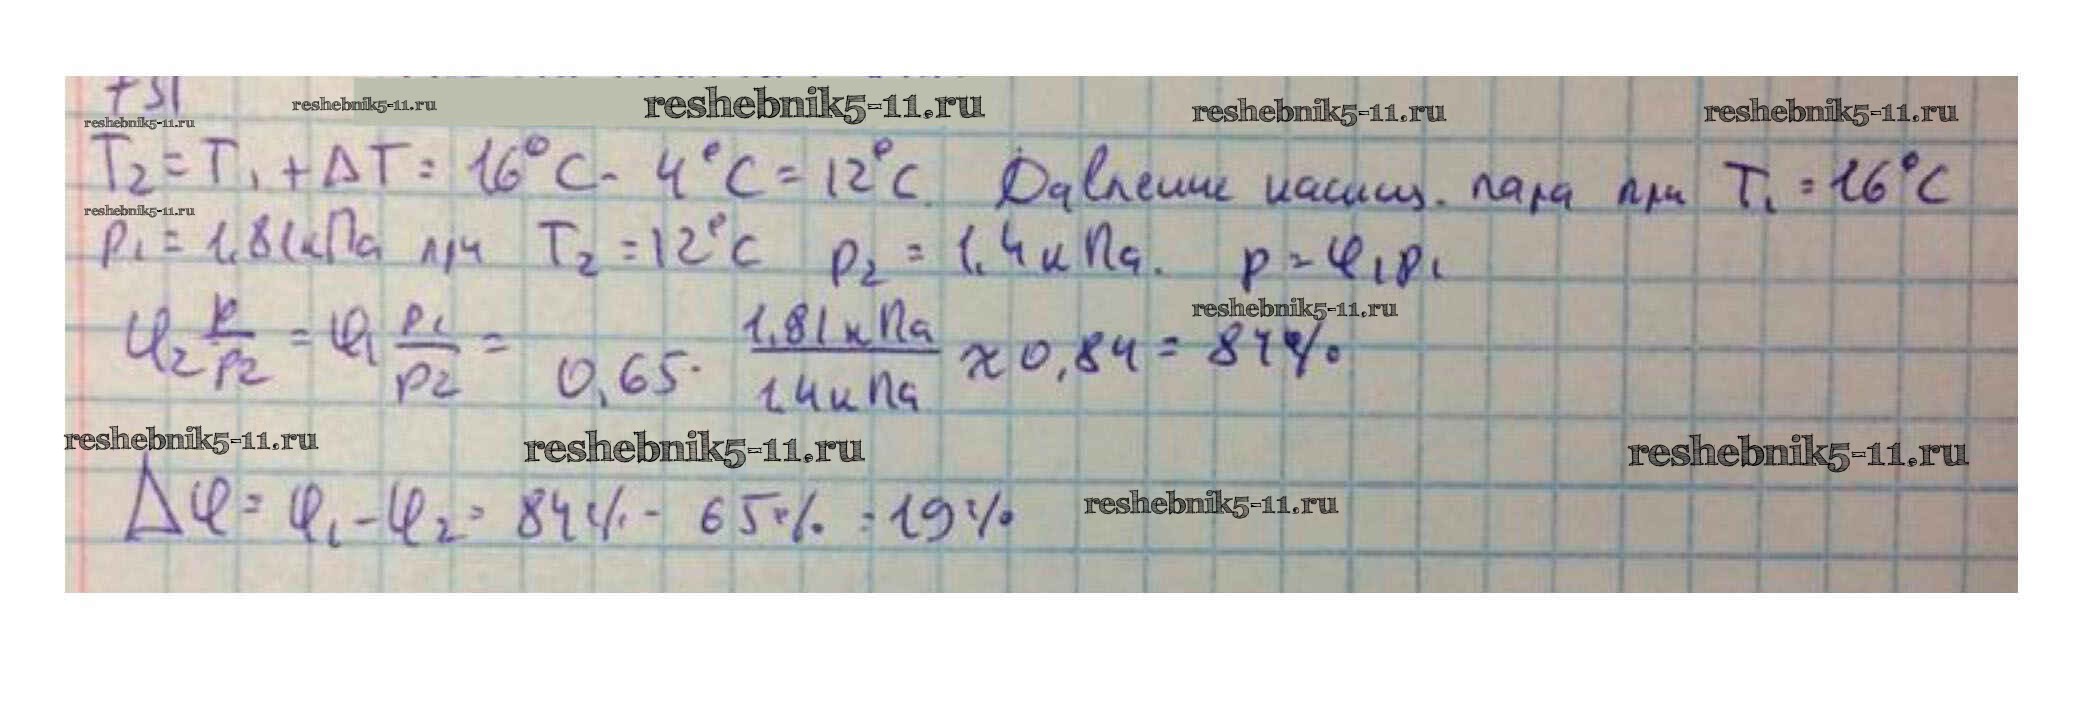 + 51
reshebnik5-11.ru reshebnik5-11.ru reshebnik5-11.ru reshebnik5-11.ru
reshebnik5-11.ru
T₂ = T₁ + ΔT = 16°C - 4°C = 12°C. Давление насыщ. пара при T₁ = 16°C
reshebnik5-11.ru
p₁ = 1,81кПа при T₂ = 12°C p₂ = 1,4 кПа. p = φ₁p₁
reshebnik5-11.ru
φ₂ p/p₂ = φ₁ p₁/p₂ = 0,65 · 1,81кПа/1,4кПа ≈ 0,84 = 84%
reshebnik5-11.ru reshebnik5-11.ru reshebnik5-11.ru
Δφ = φ₁ - φ₂ = 84% - 65% = 19% reshebnik5-11.ru